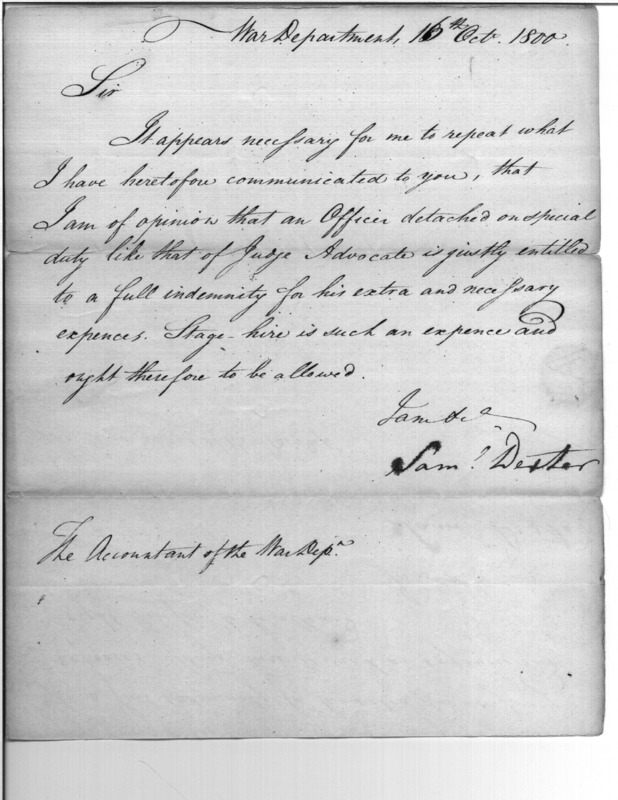 War Department, 16th Octr. 1800.
Sir
It appears necessary for me to repeat what
I have heretofore communicated to you, that
I am of opinion that an Officer detached on special
duty like that of Judge Advocate is justly entitled
to a full indemnity for his extra and necessary
expences. Stage-hire is such an expence and
ought therefore to be allowed.
I am &c
Saml. Dexter
The Accountant of the War Depn.